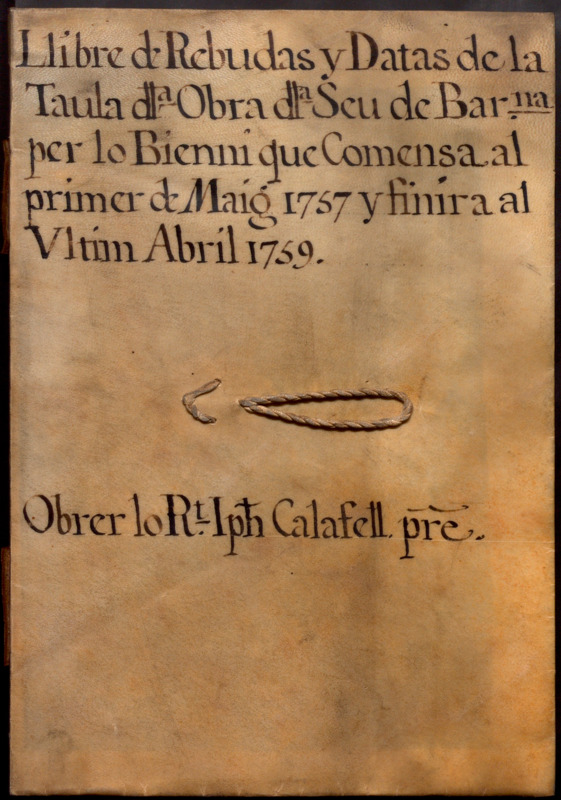 Llibre de Rebudas y Datas de la
Taula dlla. Obra dlla. Seu de Bar.na
per lo Bienni que Comensa al
primer de Maig 1757 y finira al
Vltim Abril 1759.
Obrer lo Rt. Iph Calafell. pre.